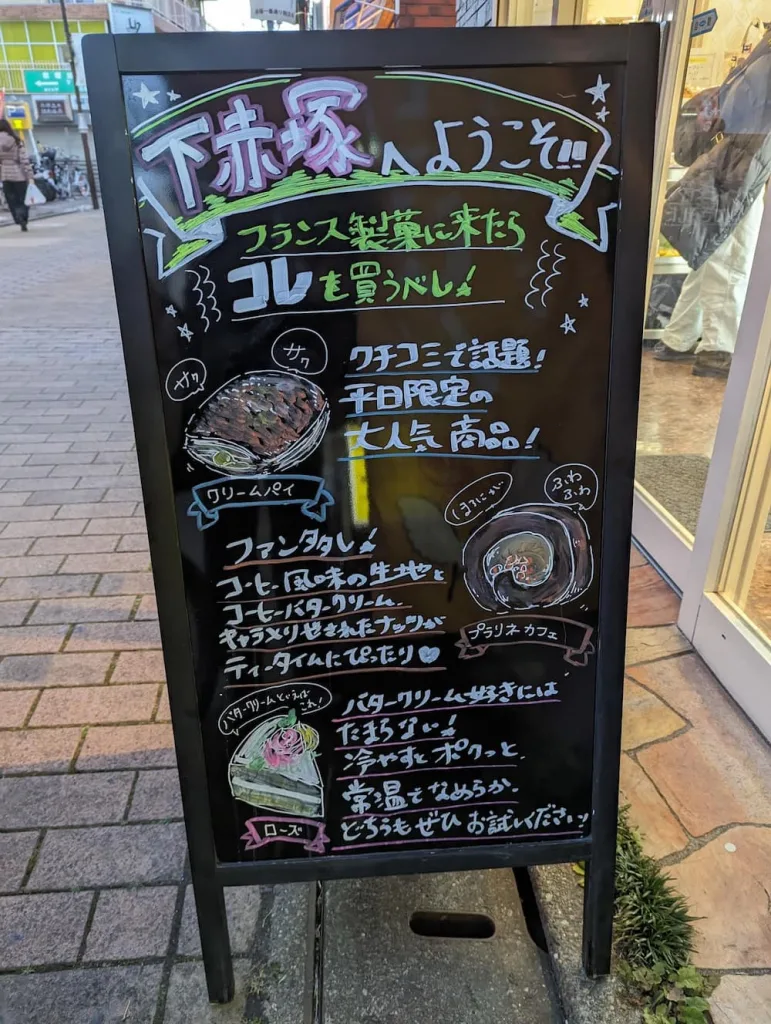 下赤塚へようこそ!!
フランス製菓に来たら
コレも買うべし!
サク
サク
クチコミで話題!
平日限定の
大人気商品!
クリームパイ
ほろにが
ふわ
ふわ
ファンタタし!
コーヒー風味の生地と
コーヒーバタークリーム、
キャラメリゼされたナッツが
ティータイムにぴったり♡
プラリネカフェ
バタークリームといえば
これ!
バタークリーム好きには
たまらない!
冷やすとポクッと、
常温でなめらか。
どちらもぜひお試しください!
ローズ